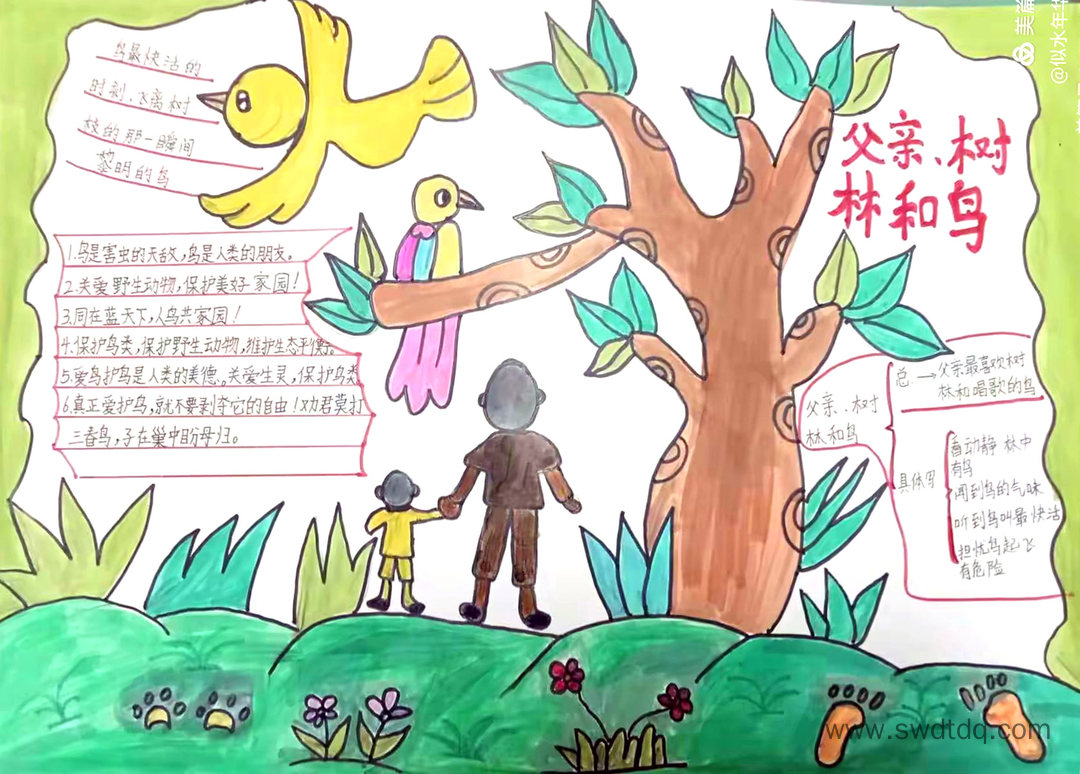 父亲、树
林和鸟
鸟最快活的
时刻,飞离树
枝的那一瞬间
黎明的鸟
1.鸟是害虫的天敌,鸟是人类的朋友。
2.关爱野生动物,保护美好家园!
3.同在蓝天下,人鸟共家园!
4.保护鸟类,保护野生动物,维护生态平衡。
5.爱鸟护鸟是人类的美德。关爱生灵,保护鸟类
6.真正爱护鸟,就不要剥夺它的自由!劝君莫打
三春鸟,子在巢中盼母归。
父亲、树
林和鸟
总→父亲最喜欢树
林和唱歌的鸟
具体写
看动静 林中
有鸟
闻到鸟的气味
听到鸟叫最快活
担忧鸟起飞
有危险
美篇
@似水年华
www.swdtdq.com